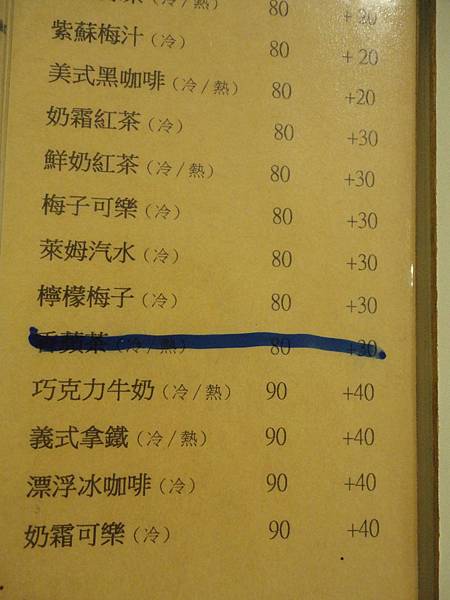 茶(冷/熱) 80 +20
紫蘇梅汁(冷) 80 +20
美式黑咖啡(冷/熱) 80 +20
奶霜紅茶(冷) 80 +30
鮮奶紅茶(冷/熱) 80 +30
梅子可樂(冷) 80 +30
萊姆汽水(冷) 80 +30
檸檬梅子(冷) 80 +30
香蘋茶(冷/熱) 80 +30
巧克力牛奶(冷/熱) 90 +40
義式拿鐵(冷/熱) 90 +40
漂浮冰咖啡(冷) 90 +40
奶霜可樂(冷) 90 +40